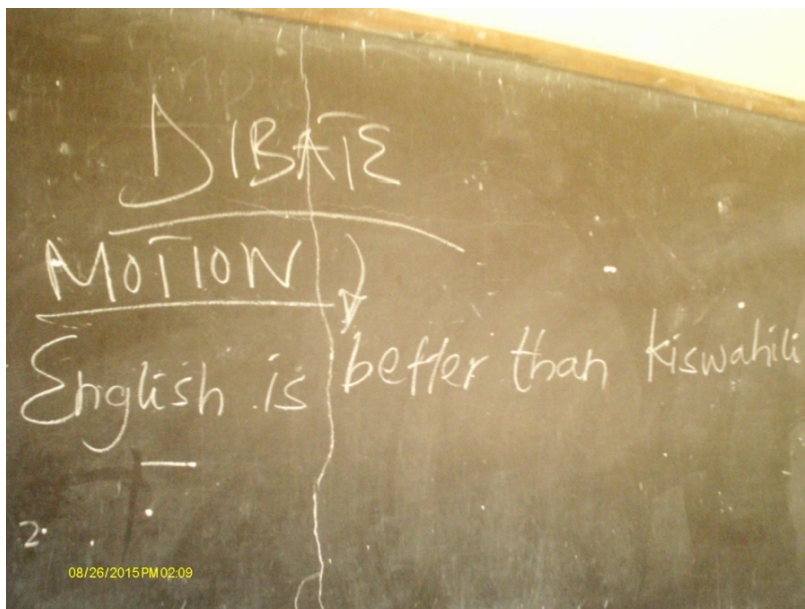 DIBATE
MOTION
English is better than kiswahili
2.
08/26/2015PM02:09